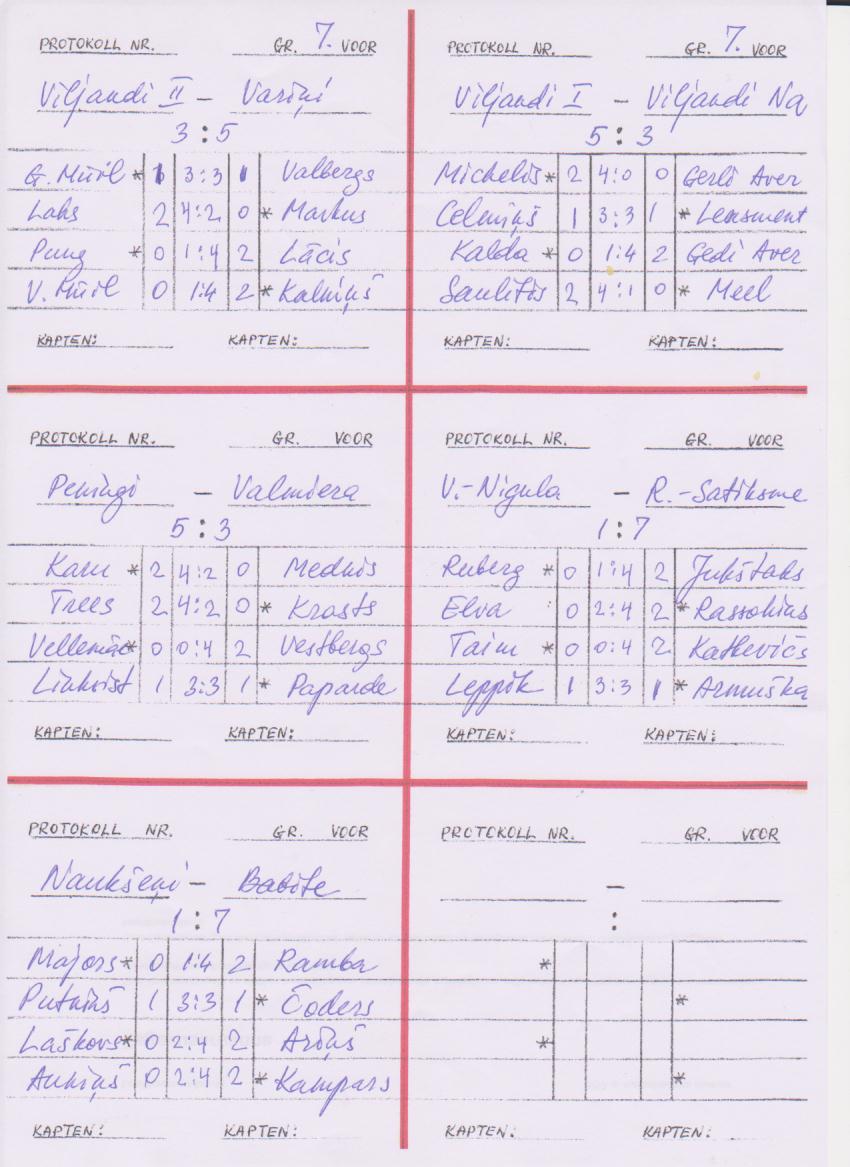 PROTOKOLL NR. GR. 7. VOOR
Viljandi II - Variņi
3:5
G. Müil * 1 3:3 1 Valbergs
Lahs 2 4:2 0 * Markus
Pung * 0 1:4 2 Lācis
V. Müil 0 1:4 2 * Kalniņš
KAPTEN: KAPTEN:
PROTOKOLL NR. GR. 7. VOOR
Viljandi I - Viljandi Na
5:3
Michelis * 2 4:0 0 Gerli Aver
Celmiņš 1 3:3 1 * Lemsment
Kalda * 0 1:4 2 Gedi Aver
Saulītis 2 4:1 0 * Meel
KAPTEN: KAPTEN:
PROTOKOLL NR. GR. VOOR
Peningi - Valmiera
5:3
Karu * 2 4:2 0 Mednis
Trees 2 4:2 0 * Krasts
Vellemäe * 0 0:4 2 Vestbergs
Linkvist 1 3:3 1 * Paparde
KAPTEN: KAPTEN:
PROTOKOLL NR. GR. VOOR
V.-Nigula - R.-Satiksme
1:7
Ruberg * 0 1:4 2 Jukštaks
Elva 0 2:4 2 * Rassohins
Taim * 0 0:4 2 Katkevičs
Leppik 1 3:3 1 * Armuška
KAPTEN: KAPTEN:
PROTOKOLL NR. GR. VOOR
Naukšeņi - Babīte
1:7
Majors * 0 1:4 2 Ramba
Putniņš 1 3:3 1 * Čoders
Laškovs * 0 2:4 2 Ariņš
Auniņš 0 2:4 2 * Kampars
KAPTEN: KAPTEN:
PROTOKOLL NR. GR. VOOR
-
:
*
*
*
*
KAPTEN: KAPTEN: